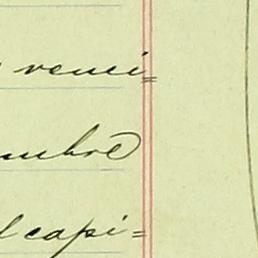 venci=
mbre
l capi=